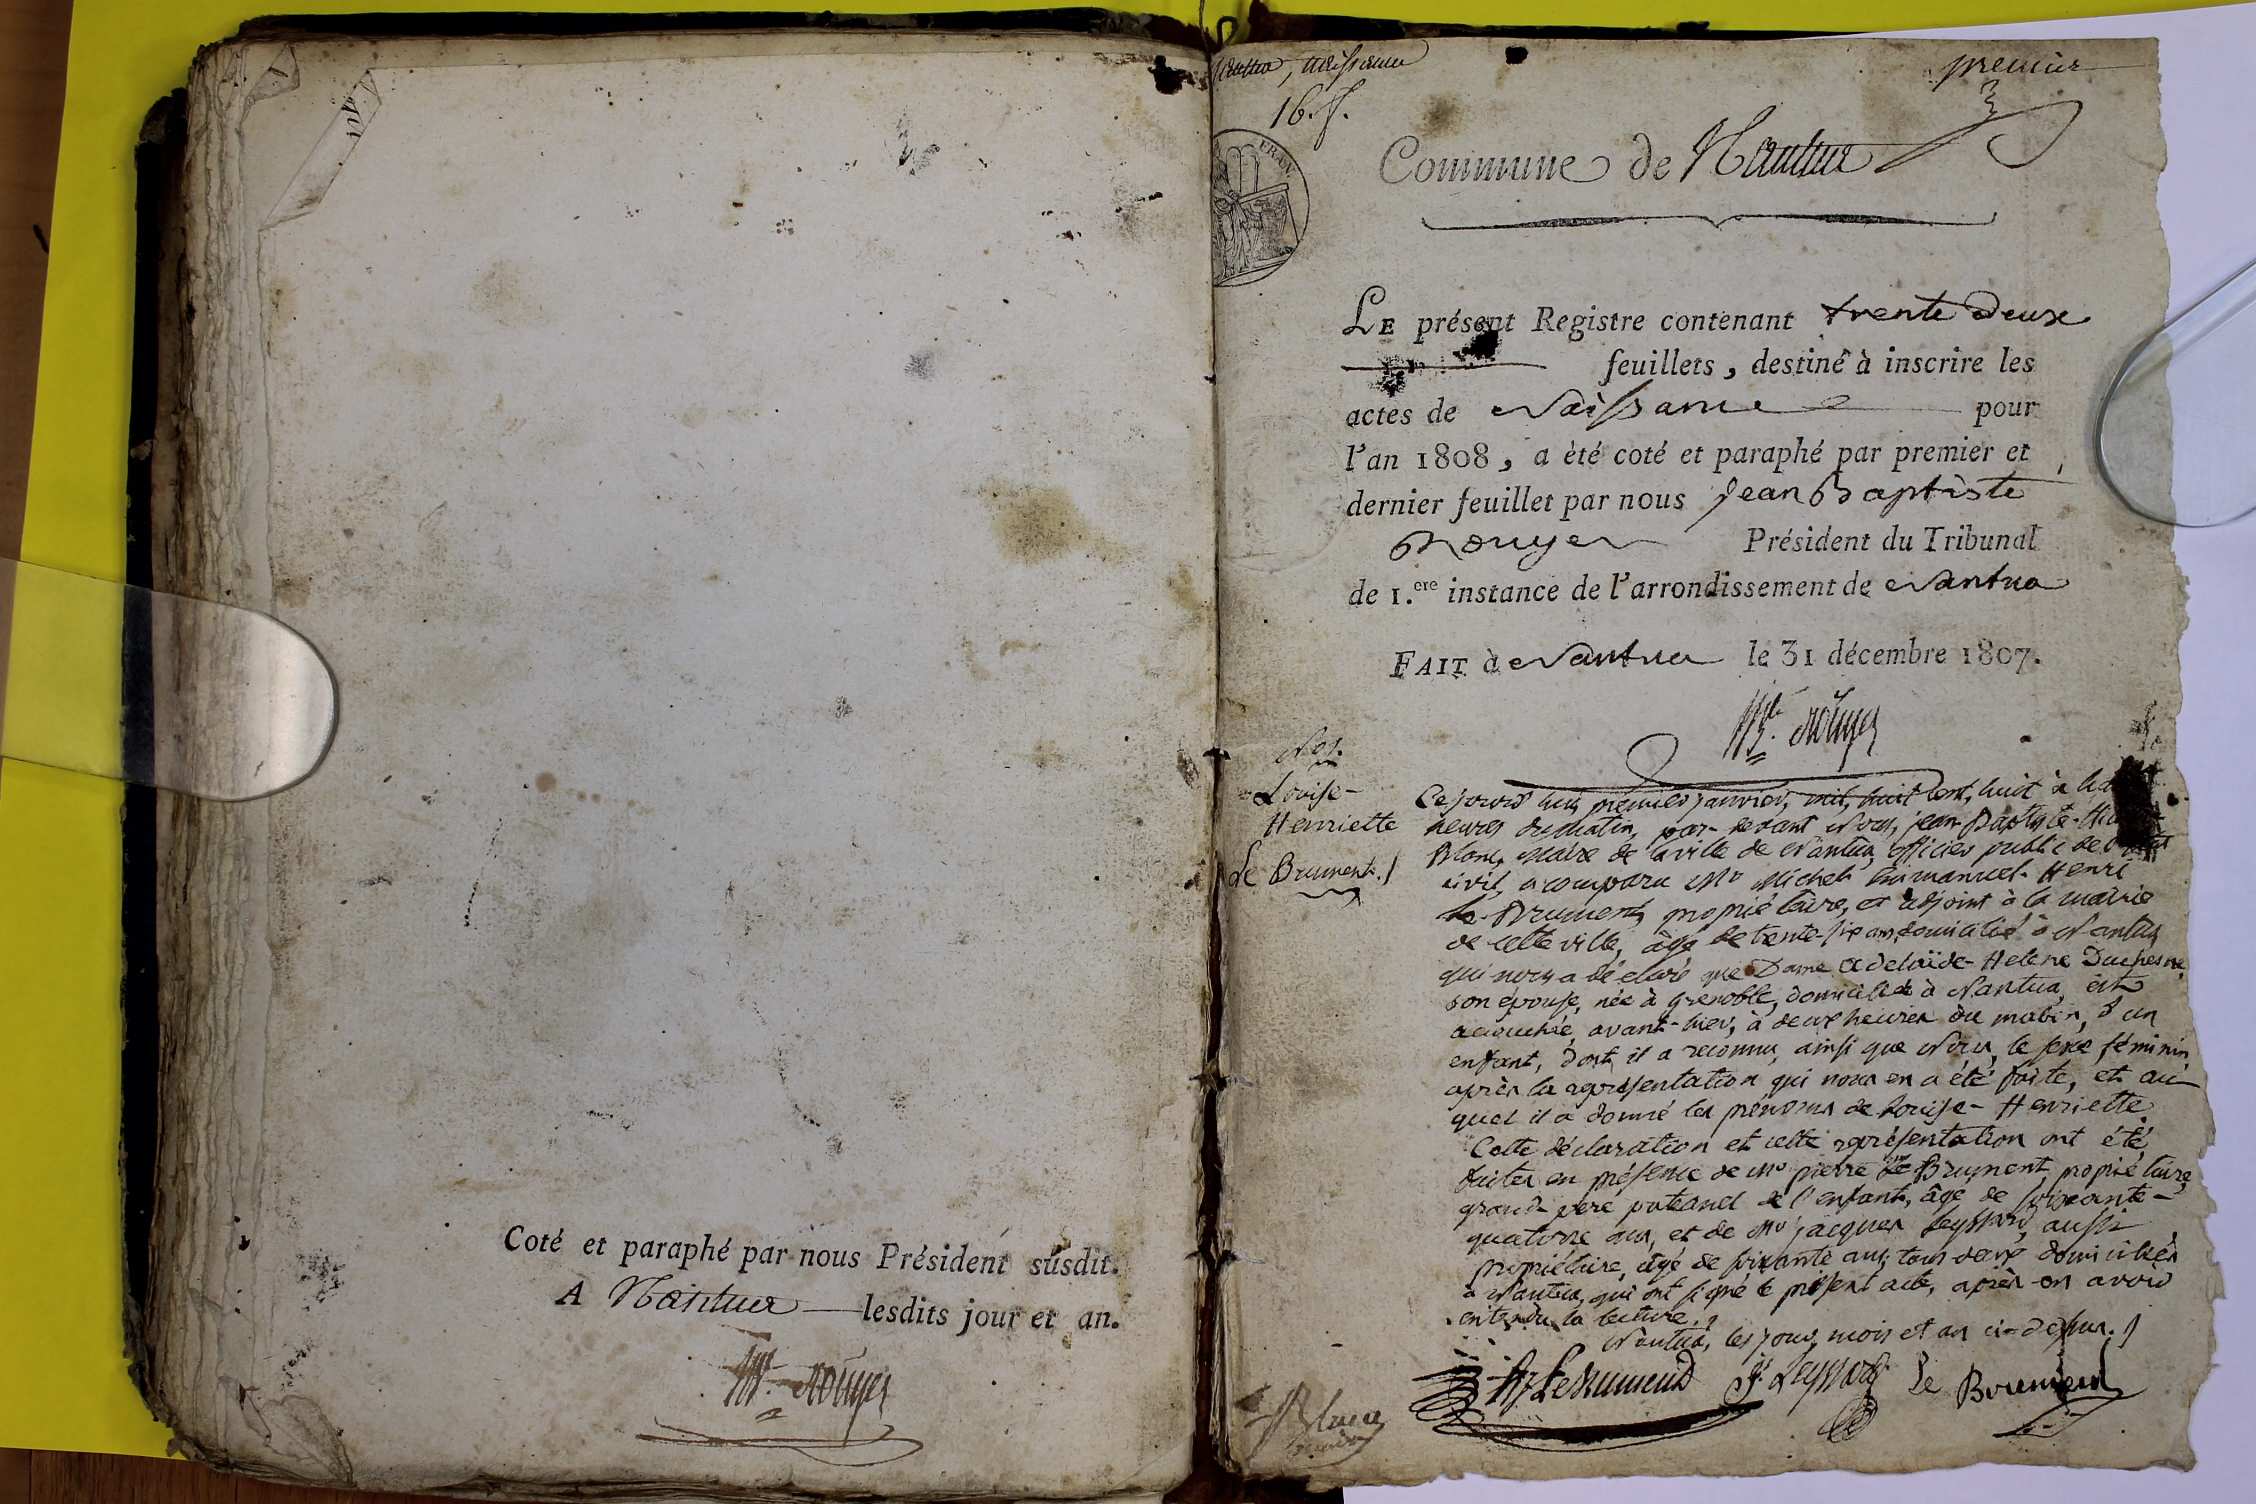 Coté et paraphé par nous Président susdit.
A Nantua lesdits jour et an.
Nantua, naissance
premier
16. f.
FRAN.
Commune de Nantua
LE présent Registre contenant trente deux
feuillets, destiné à inscrire les
actes de Naissance pour
l'an 1808, a été coté et paraphé par premier et
dernier feuillet par nous Jean Baptiste
Rouyer Président du Tribunal
de 1.ere instance de l'arrondissement de Nantua
FAIT à Nantua le 31 décembre 1807.
Rouyer
No 1.
Louise-
Henriette
Le Brument.
Cejourd'hui premier janvier, mil, huit cent, huit à
heures du matin, par-devant Nous, jean-Baptiste-
Blanc, Maire de la ville de Nantua, officier public de l'état
civil, a comparu Mr Michel Emmanuel-Henri
Le-Brument, propriétaire, et adjoint à la mairie
de cette ville, âgé de trente-six ans, domicilié à Nantua
qui nous a déclaré que Dame Adelaïde-Helene Duchesne,
son épouse, née à grenoble, domiciliée à Nantua, est
accouchée, avant-hier, à deux heures du matin, d'un
enfant, dont il a reconnu, ainsi que Nous, le sexe féminin,
après la représentation qui nous en a été faite, et au-
quel il a donné les prénoms de Louise-Henriette.
Cette déclaration et cette représentation ont été
faites en présence de Mr pierre Le Brument, propriétaire,
grand-pere paternel de l'enfant, âgé de soixante-
quatorze ans, et de Mr jacques Leyssard, aussi
propriétaire, âgé de soixante ans, tous deux domiciliés
à Nantua, qui ont signé le présent acte, après en avoir
entendu la lecture.
Nantua, les jour, mois et an ci-dessus.
Lebrument J. Leyssard Le Brument
Blanc